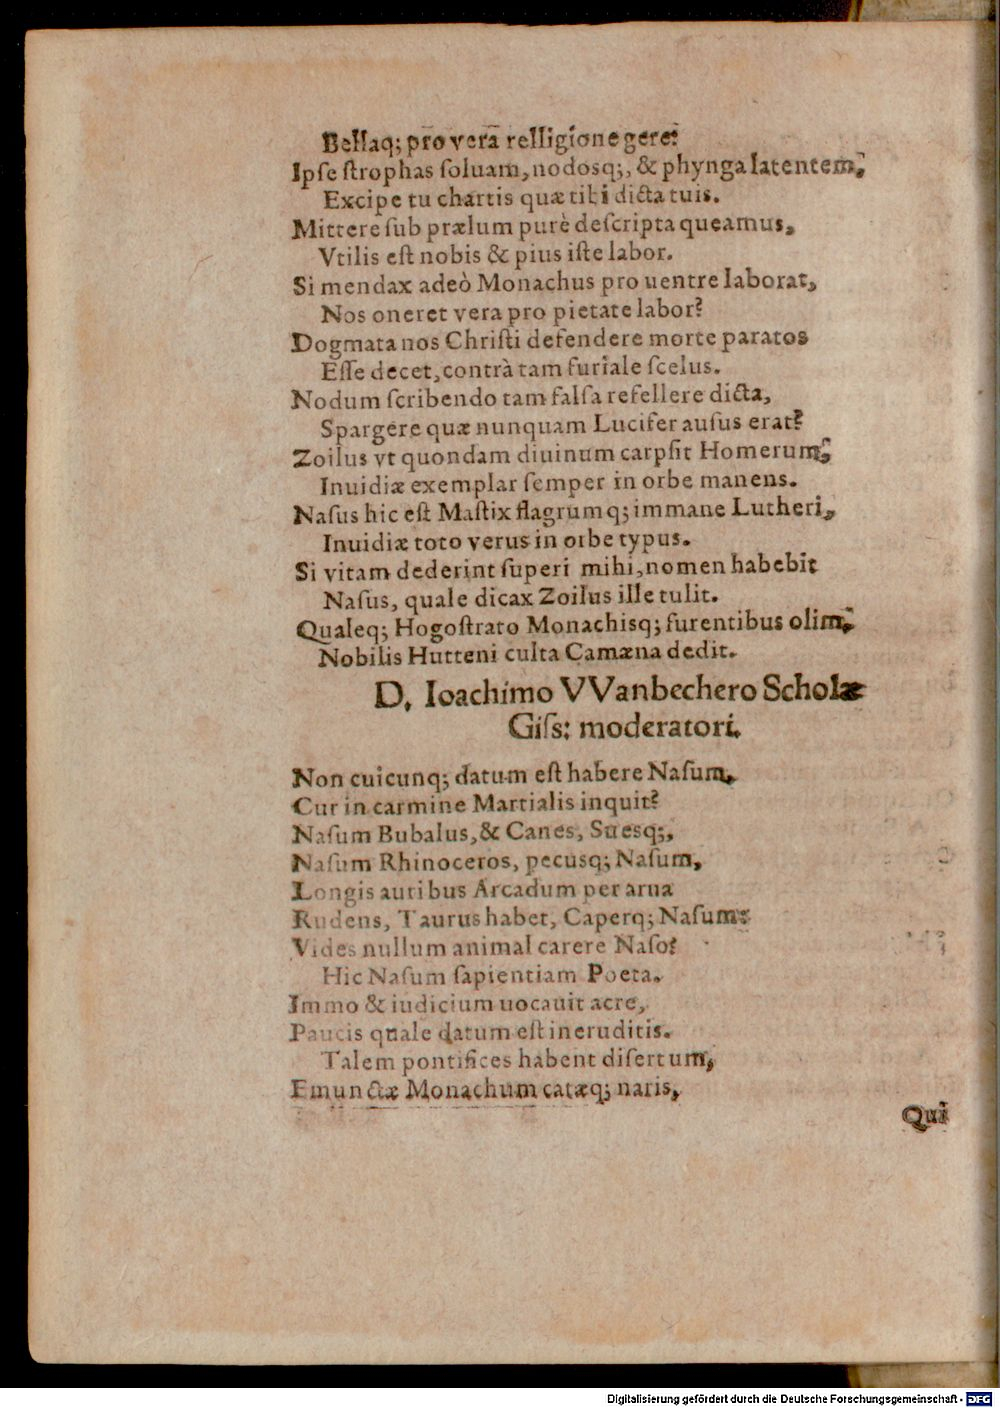 Bellaq; pro vera relligione gere?
Ipse strophas soluam, nodosq;, & phynga latentem,
Excipe tu chartis quæ tibi dicta tuis.
Mittere sub prælum purè descripta queamus,
Vtilis est nobis & pius iste labor.
Si mendax adeò Monachus pro uentre laborat,
Nos oneret vera pro pietate labor?
Dogmata nos Christi defendere morte paratos
Esse decet, contrà tam furiale scelus.
Nodum scribendo tam falsa refellere dicta,
Spargere quæ nunquam Lucifer ausus erat?
Zoilus vt quondam diuinum carpsit Homerum,
Inuidiæ exemplar semper in orbe manens.
Nasus hic est Mastix flagrumq; immane Lutheri,
Inuidiæ toto verus in orbe typus.
Si vitam dederint superi mihi, nomen habebit
Nasus, quale dicax Zoilus ille tulit.
Qualeq; Hogostrato Monachisq; furentibus olim,
Nobilis Hutteni culta Camæna dedit.
D. Ioachimo VVanbechero Scholæ
Giss: moderatori.
Non cuicunq; datum est habere Nasum,
Cur in carmine Martialis inquit?
Nasum Bubalus, & Canes, Suesq;,
Nasum Rhinoceros, pecusq; Nasum,
Longis auribus Arcadum per arua
Rudens, Taurus habet, Caperq; Nasum:
Vides nullum animal carere Naso?
Hic Nasum sapientiam Poeta.
Immo & iudicium uocauit acre,
Paucis quale datum est ineruditis.
Talem pontifices habent disertum,
Emunctæ Monachum catæq; naris,
Qui
Digitalisierung gefördert durch die Deutsche Forschungsgemeinschaft - DFG